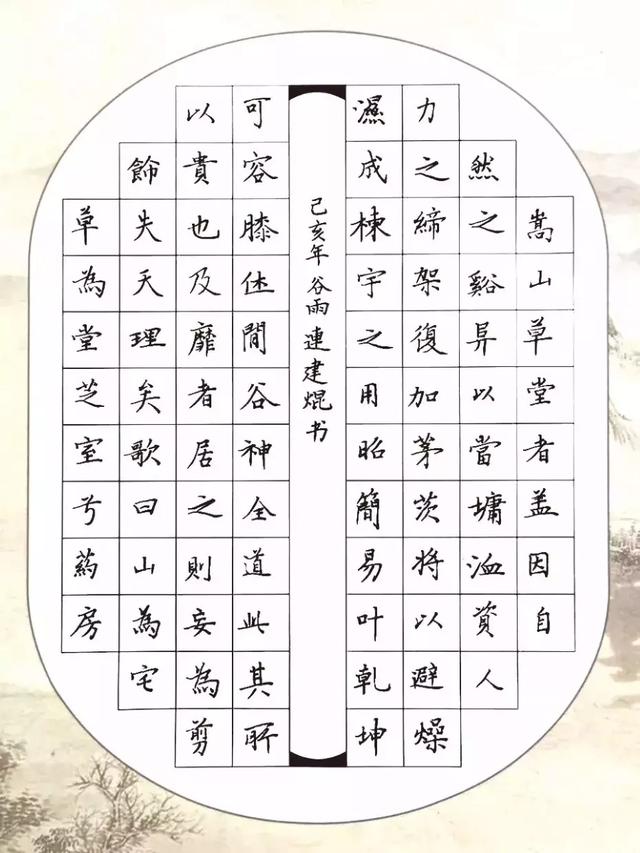 嵩山草堂者盖因自
然之谿异以當墉洫資人
力之締架復加茅茨將以避燥
濕成棟宇之用昭簡易叶乾坤
己亥年谷雨連建焜书
可容膝休閒谷神全道此其所
以貴也及靡者居之則妄為剪
飾失天理矣歌曰山為宅
草為堂芝室兮葯房